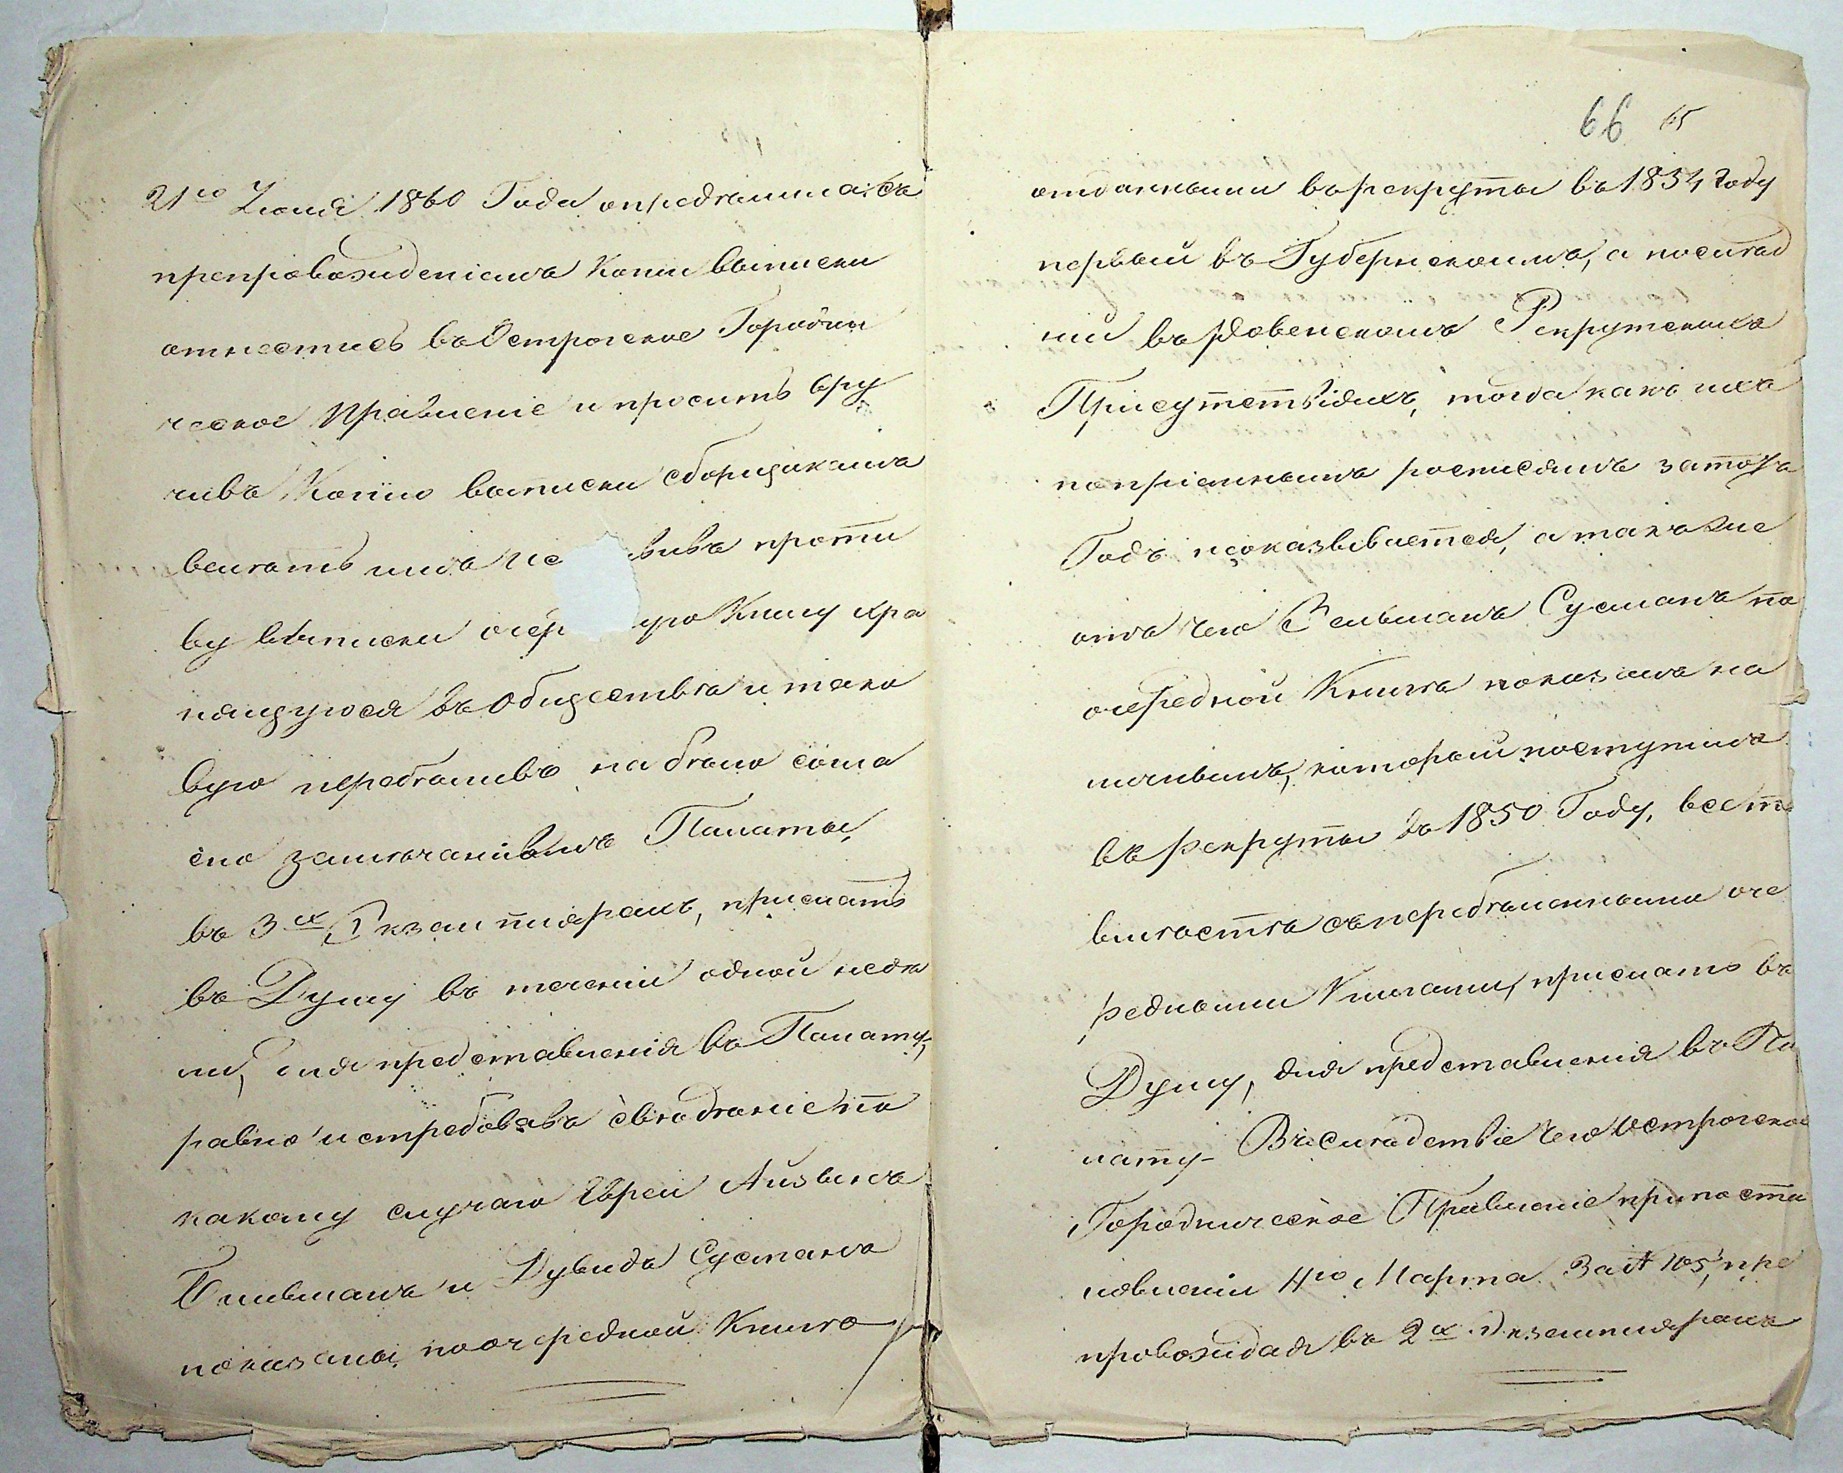 21го Июля 1860 Года определила: съ
препровожденіемъ Копіи выписки
отнестись въ Острогское Городни
ческое Правленіе и просить вру
чивъ Копію выписки сборщикамъ
велѣть имъ не вивъ проти
ву выписки очер ую Книгу хра
нящуюся въ Обществѣ и тако
вую передѣлавъ на бѣло согла
сно замѣчаніямъ Палаты,
въ 3хъ Экземплярахъ, прислать
въ Думу въ теченіи одной недѣ
ли, для представленія въ Палату,
равно истребовавъ свѣдѣніе по
какому случаю Евреи Айзыкъ
и Дувидъ Сусманъ
показаны по очередной Книгѣ
66 65
отданными въ рекруты въ 1854 году
первый въ Губернскомъ, а послѣд
ній въ Ровенскомъ Рекрутскихъ
Присутствіяхъ, тогда какъ ихъ
по пріемнымъ росписямъ за тотъ
Годъ неоказывается, а также
отъ чего Зельманъ Сусманъ по
очередной Книгѣ показанъ на
личнымъ, который поступилъ
въ рекруты въ 1850 Году, все
вмѣстѣ съ передѣланными оче
редными Книгами, прислать въ
Думу, для представленія въ Па
лату. Въ слѣдствіе чего Острогское
Городническое Правленіе при
новленіи 4го Марта за № 105, пре
провождая въ 2хъ Экземплярахъ